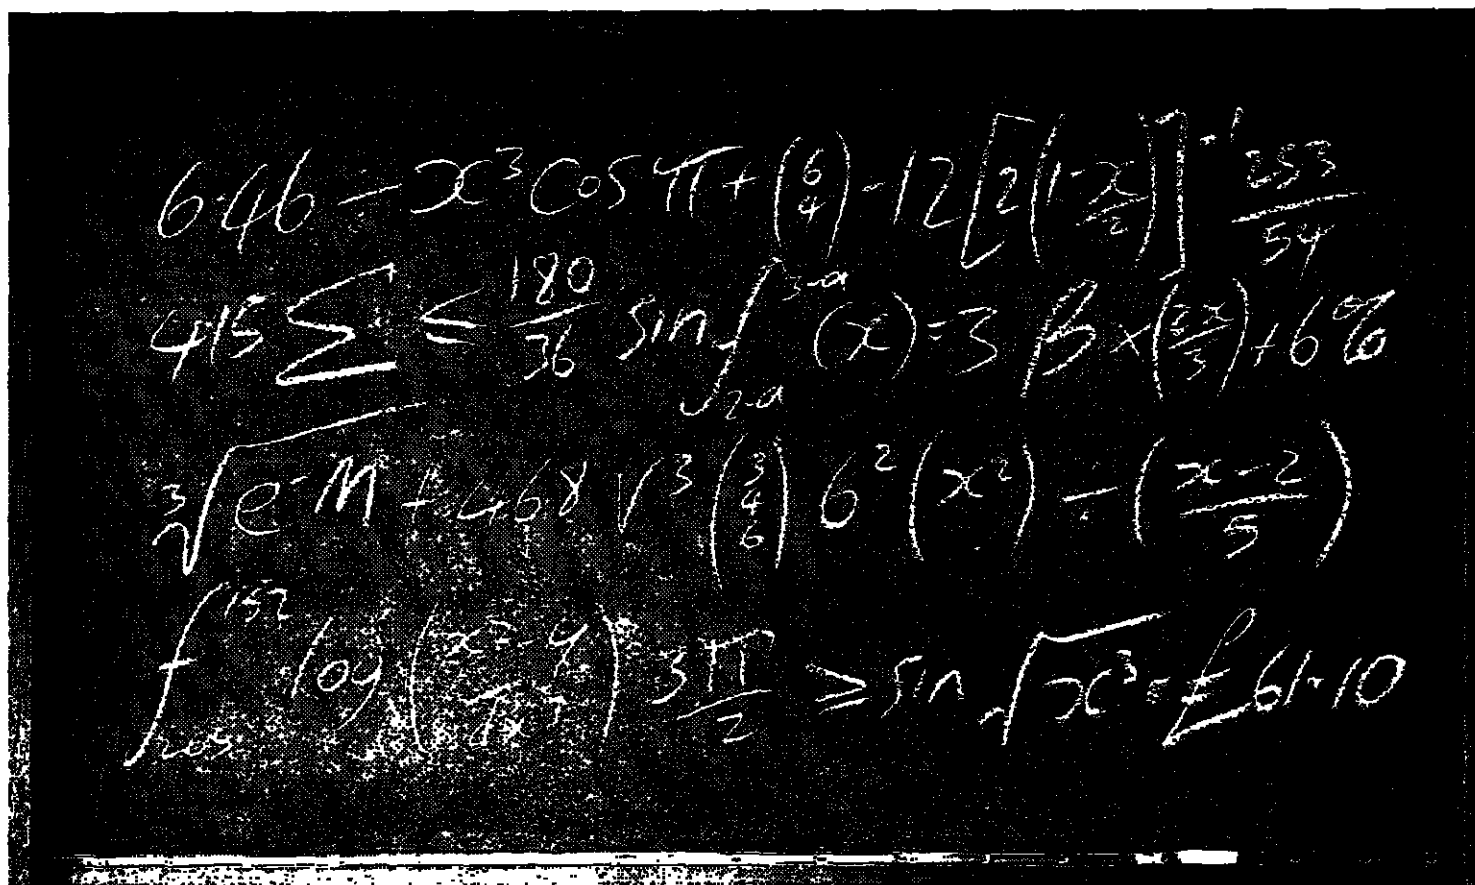 6·46 − x³ cos π + (6/4) − 12 [2(1−x/2)]⁻¹ 253/54
415 Σ ≤ 180/36 sin ∫ 3-a 2-a (x) = 3 β × (3x/3) + 6%
³√e⁻ᴹ + 468 √3 (3 4 6) 6² (x²) ÷ (x−2/5)
∫ 152 log (x²−4) 3π/2 ≥ sin √x³ = £61·10